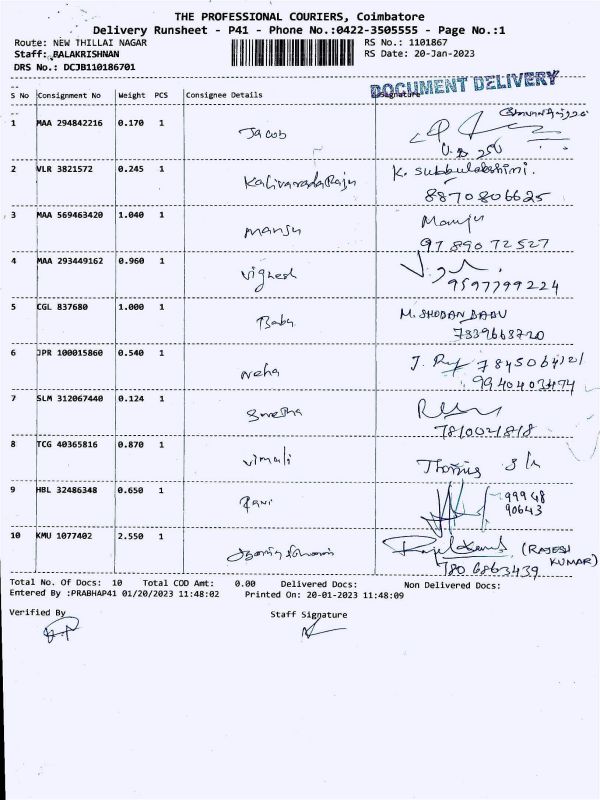 THE PROFESSIONAL COURIERS, Coimbatore
Delivery Runsheet - P41 - Phone No.:0422-3505555 - Page No.:1
Route: NEW THILLAI NAGAR RS No.: 1101867
Staff: BALAKRISHNAN RS Date: 20-Jan-2023
DRS No.: DCJB110186701
DOCUMENT DELIVERY
S No Consignment No Weight PCS Consignee Details Signature
1 MAA 294842216 0.170 1 Jacob
2 VLR 3821572 0.245 1 Kalivaradaraju K. Subbulakshmi.
8870806625
3 MAA 569463420 1.040 1 Manju Manju
9789072527
4 MAA 293449162 0.960 1 Vighesh
9597799224
5 CGL 837680 1.000 1 Babu M. SHOBAN BABU
7339668720
6 JPR 100015860 0.540 1 Neha 7845064121
9940403474
7 SLM 312067440 0.124 1 Swetha
7810021818
8 TCG 40365816 0.870 1 Vimali Thomas
9 HBL 32486348 0.650 1 Rani 99948
90643
10 KMU 1077402 2.550 1 (RAJESH
KUMAR)
7806863439
Total No. Of Docs: 10 Total COD Amt: 0.00 Delivered Docs: Non Delivered Docs:
Entered By :PRABHAP41 01/20/2023 11:48:02 Printed On: 20-01-2023 11:48:09
Verified By Staff Signature